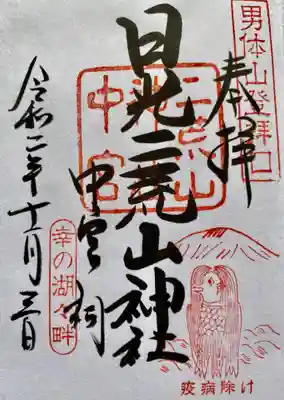 男体山登拝口
奉拝
日光二荒山神社
中宮祠
二荒山
中宮
令和二年十一月三日
幸の湖々畔
疫病除け